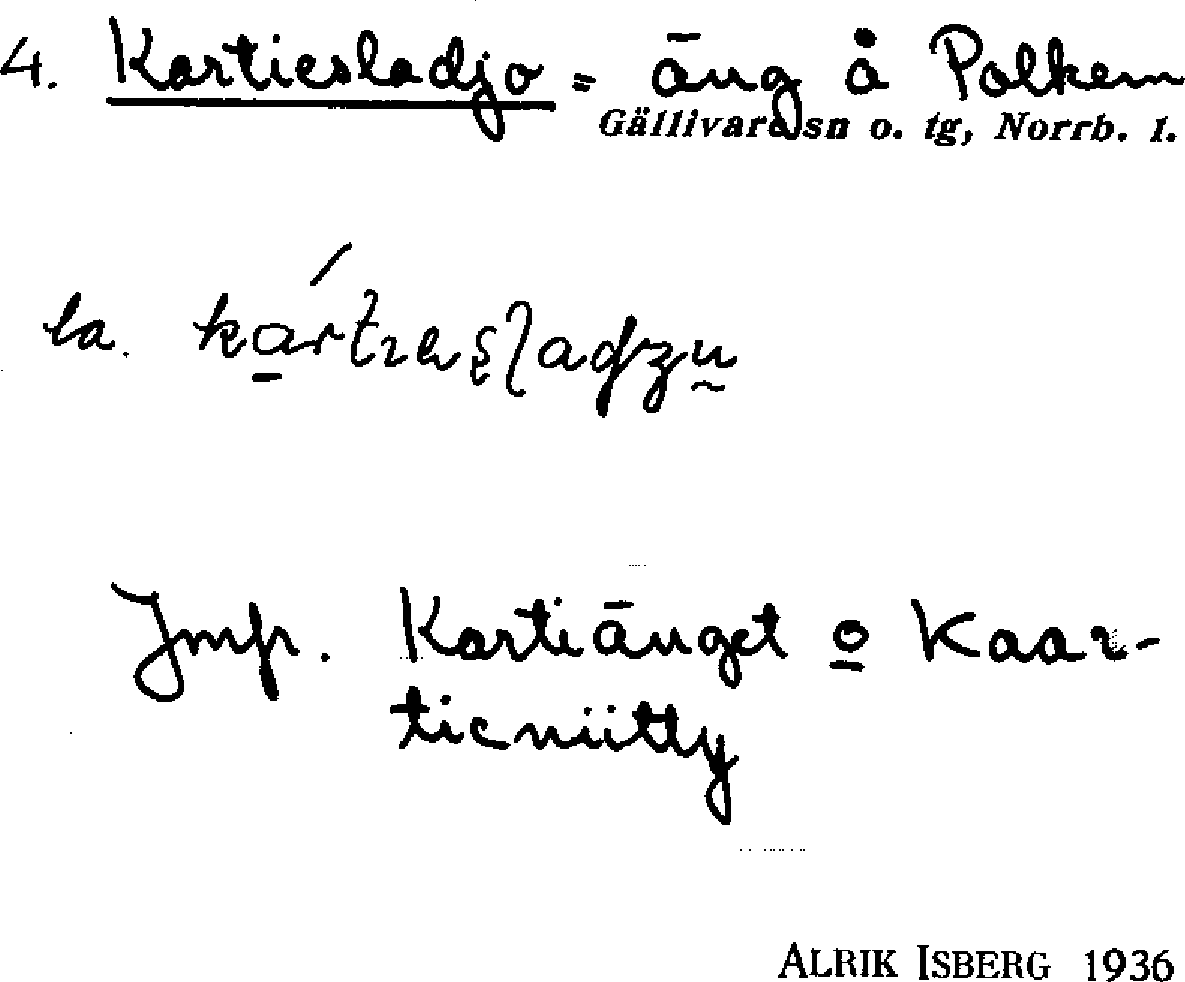 4. Kartiesladjo = äng å Polkem
Gällivare sn o. tg, Norrb. l.
la.
Jmfr. Kartiänget o Kaar-
tieniitty
ALRIK ISBERG 1936